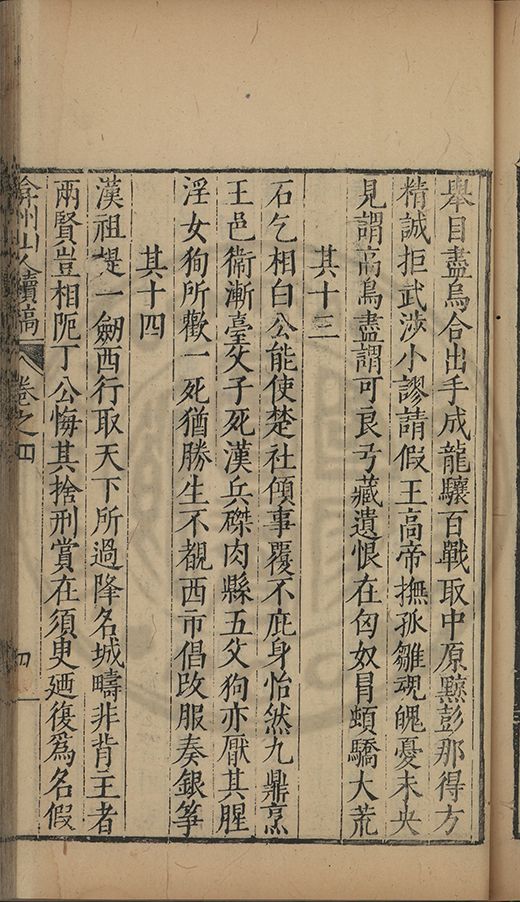 舉目盡烏合出手成龍驤百戰取中原黥彭那得方
精誠拒武涉小謬請假王高帝撫孤雛魂魄憂未央
見謂高鳥盡謂可良弓藏遺恨在匈奴冒頓驕大荒
其十三
石乞相白公能使楚社傾事覆不庇身怡然九鼎烹
王邑衛漸臺父子死漢兵磔肉縣五父狗亦厭其腥
淫女狥所歡一死猶勝生不覩西市倡改服奏銀箏
其十四
漢祖提一劒西行取天下所過降名城疇非背王者
兩賢豈相阨丁公悔其捨刑賞在須臾廼復爲名假
弇州山人續稿
卷之四
四